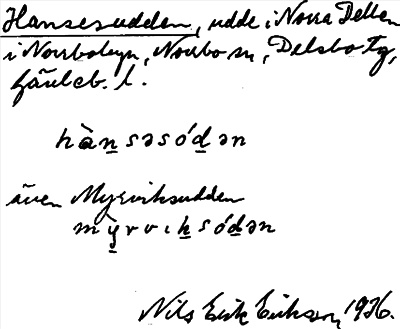 Hansesudden, udde i Norra Dellen
i Norrbobyn, Norrbo sn, Delsbo tg,
Gävleb. l.
hànsəsódən
även Myrviksudden
mỳrvıksódən
Nils Erik Eriksson, 1936.